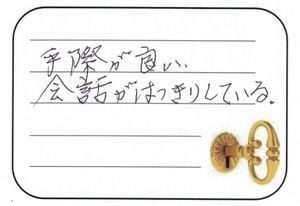 手際が良い
会話がはっきりしている。